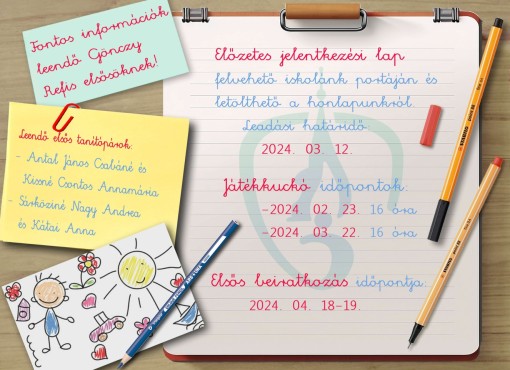 Fontos információk
leendő Gönczy
Refis elsősöknek!
Leendő elsős tanítópárok:
- Antal János Csabáné és
Kissné Csontos Annamária
- Sárköziné Nagy Andrea
és Kátai Anna
Előzetes jelentkezési lap
felvehető iskolánk portáján és
letölthető a honlapunkról.
Leadási határidő:
2024. 03. 12.
Játékkuckó időpontok:
-2024. 02. 23. 16 óra
-2024. 03. 22. 16 óra
Elsős beiratkozás időpontja:
2024. 04. 18-19.